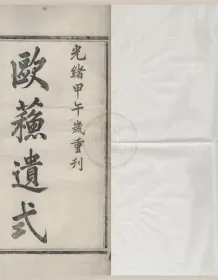 光緒甲午歲重刊
歐蘇遺式